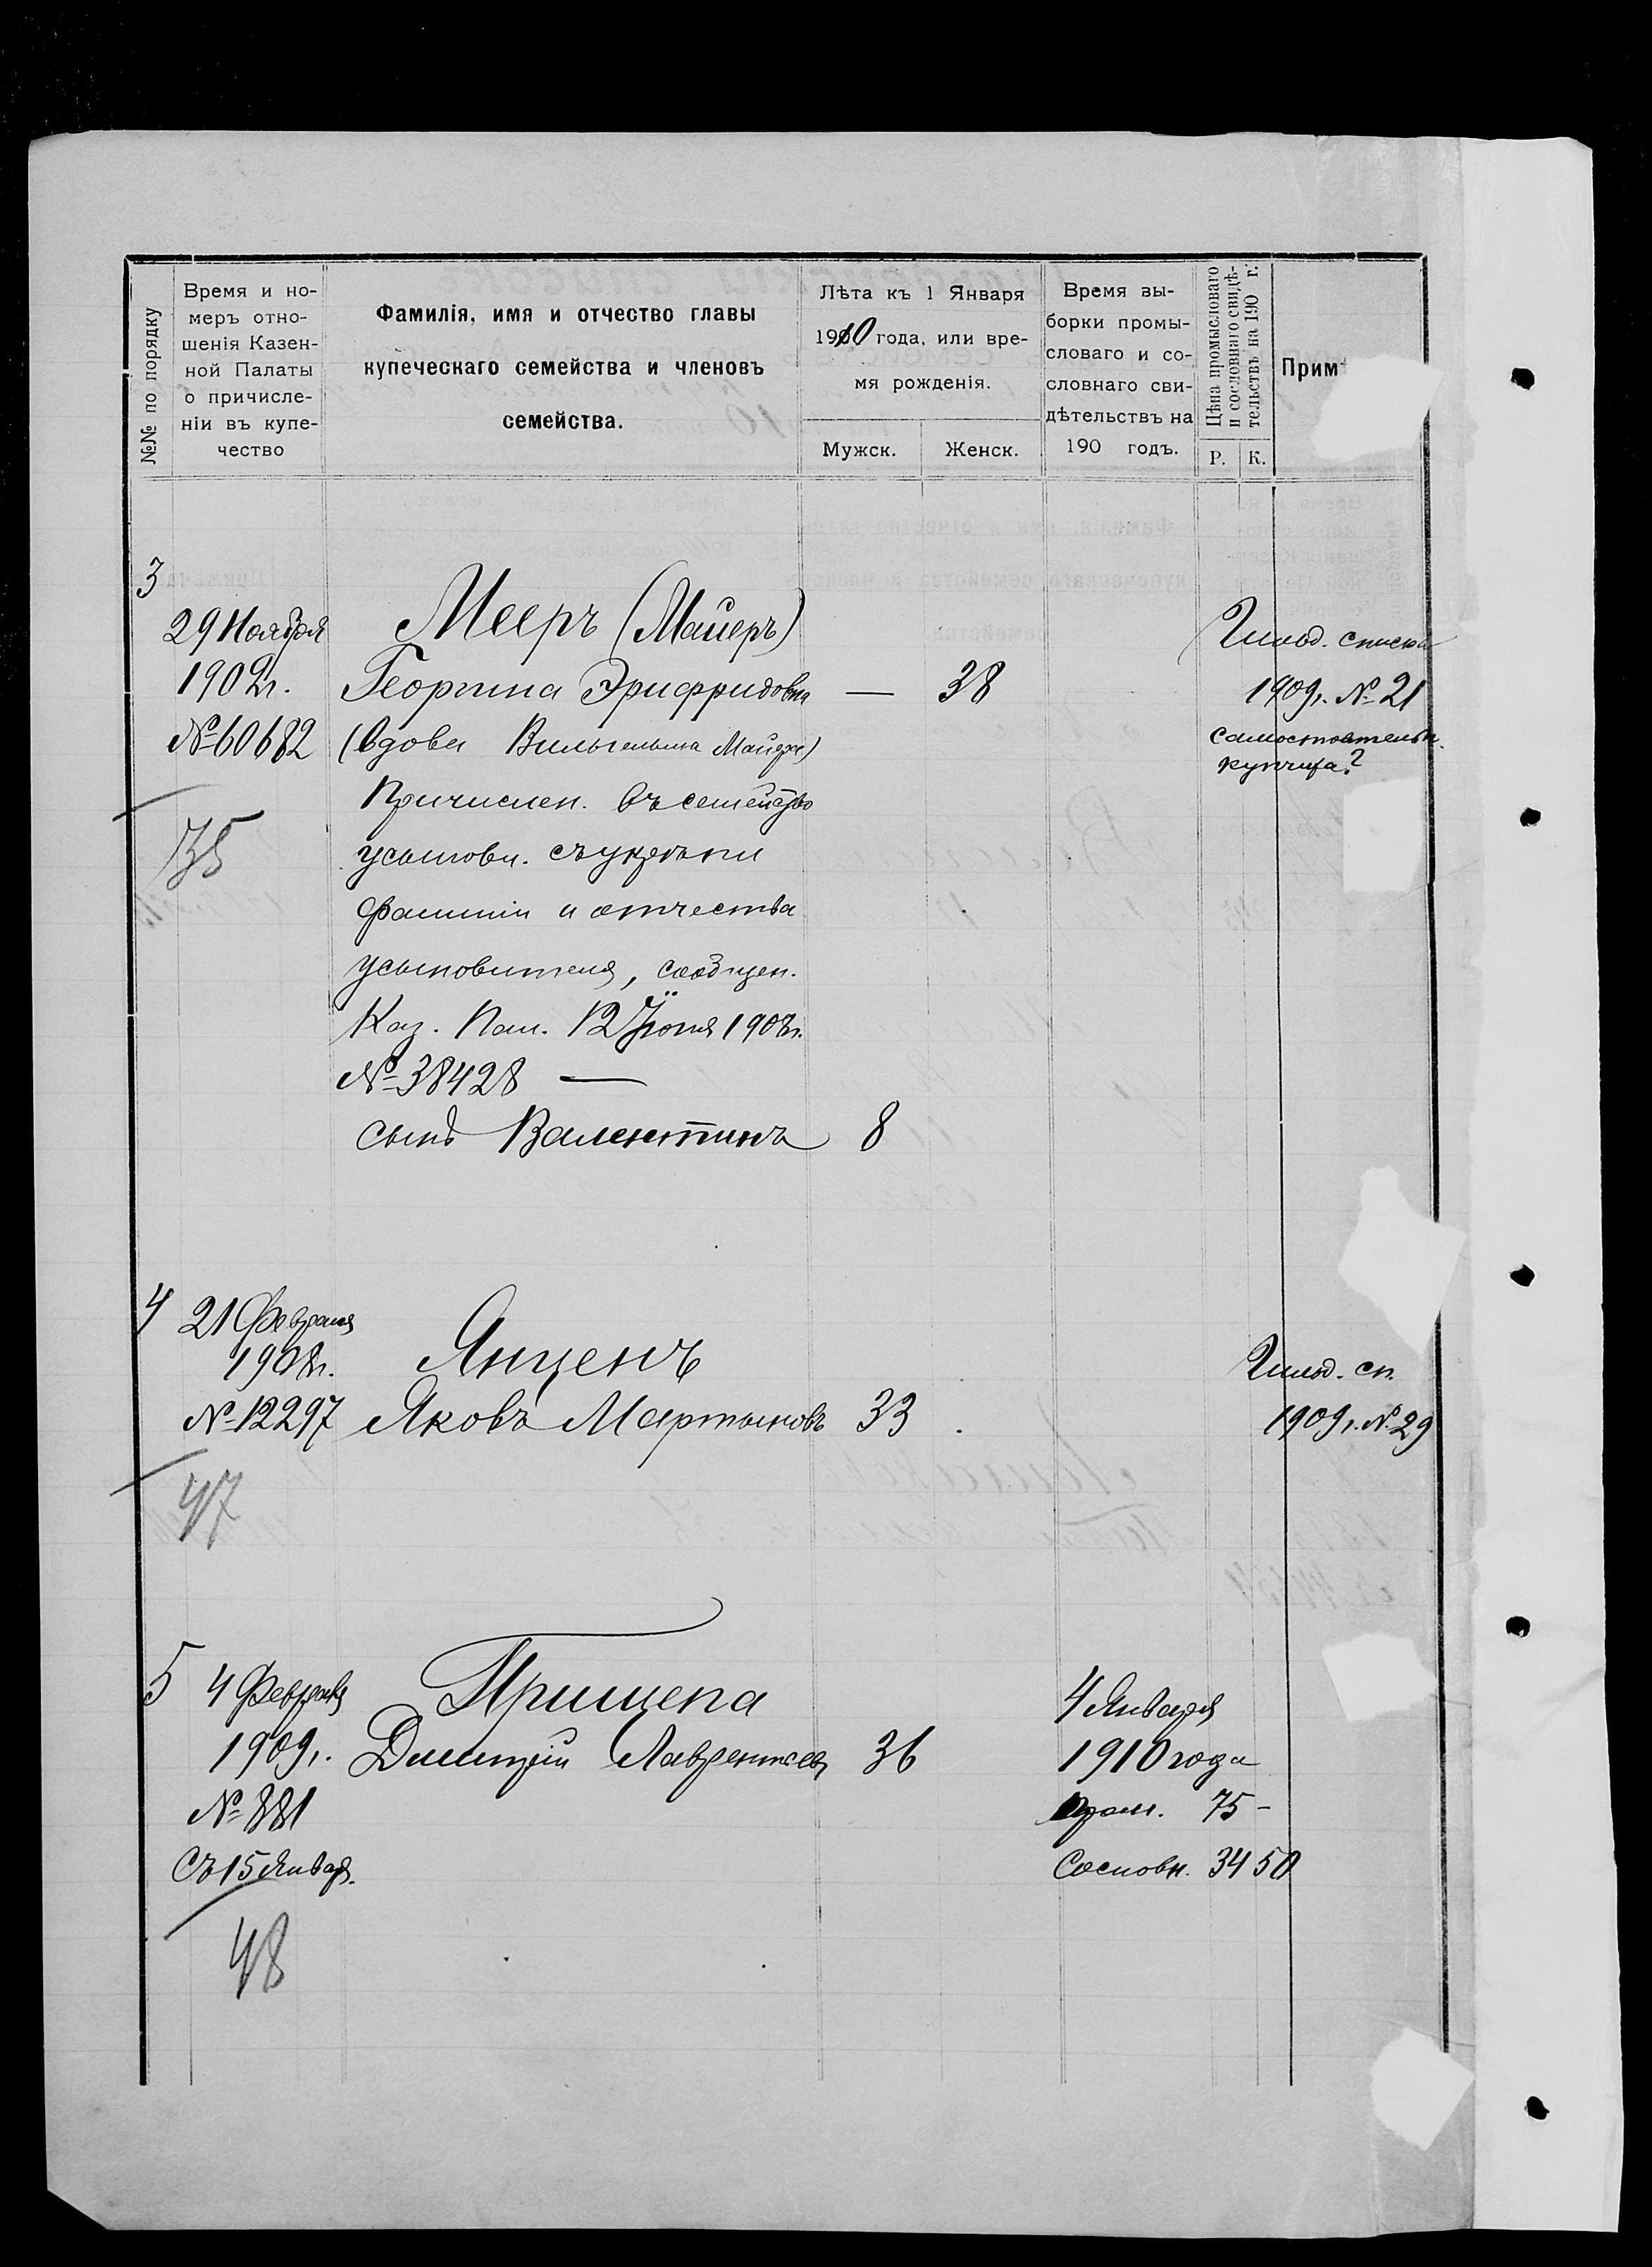 №№ по порядку
Время и но-
меръ отно-
шенія Казен-
ной Палаты
о причисле-
ніи въ купе-
чество
Фамилія, имя и отчество главы
купеческаго семейства и членовъ
семейства.
Лѣта къ 1 Января
1910 года, или вре-
мя рожденія.
Мужск.
Женск.
Время вы-
борки промы-
словаго и со-
словнаго сви-
дѣтельствъ на
190 годъ.
Цѣна промысловаго
и сословнаго свидѣ-
тельствъ на 190 г.
Р.
К.
Прим
3
29 Ноября
1902 г.
№ 60682
35
Мееръ (Майеръ)
Георгина Эрнфридовна — 38
(вдова Вильгельма Майера)
Причислен. въ семейство
усыновл. съ
фамиліи и отчества
усыновителя, сообщен.
Каз. Пал. 12 Іюня 1908 г.
№ 38428 —
сынъ Валентинъ 8
Гильд. списка
1909 г. № 21
самостоятельн.
купчиха?
4
21 Февраля
1908 г.
№ 12297
47
Янценъ
Яковъ Мартыновъ 33
Гильд. сп.
1909 г. № 29
5
4 Февраля
1909 г.
№ 881
Съ 15 Январ.
48
Прищепа
Дмитрій Лаврентьев 36
4 Января
1910 года
Пром. 75 -
Сословн. 34 50